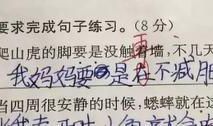 要求完成句子练习。(8分)
爬山虎的脚要是没触着墙,不几天
我妈妈要是再不减肥
当四周很安静的时候,蟋蟀就在这